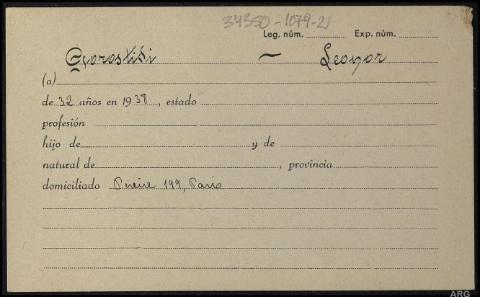 34350-1079-21
Leg. núm. Exp. núm.
Gorostidi - Leonor
(a)
de 32 años en 1938, estado
profesión
hijo de y de
natural de , provincia
domiciliado Pereire 199, Paris
ARG